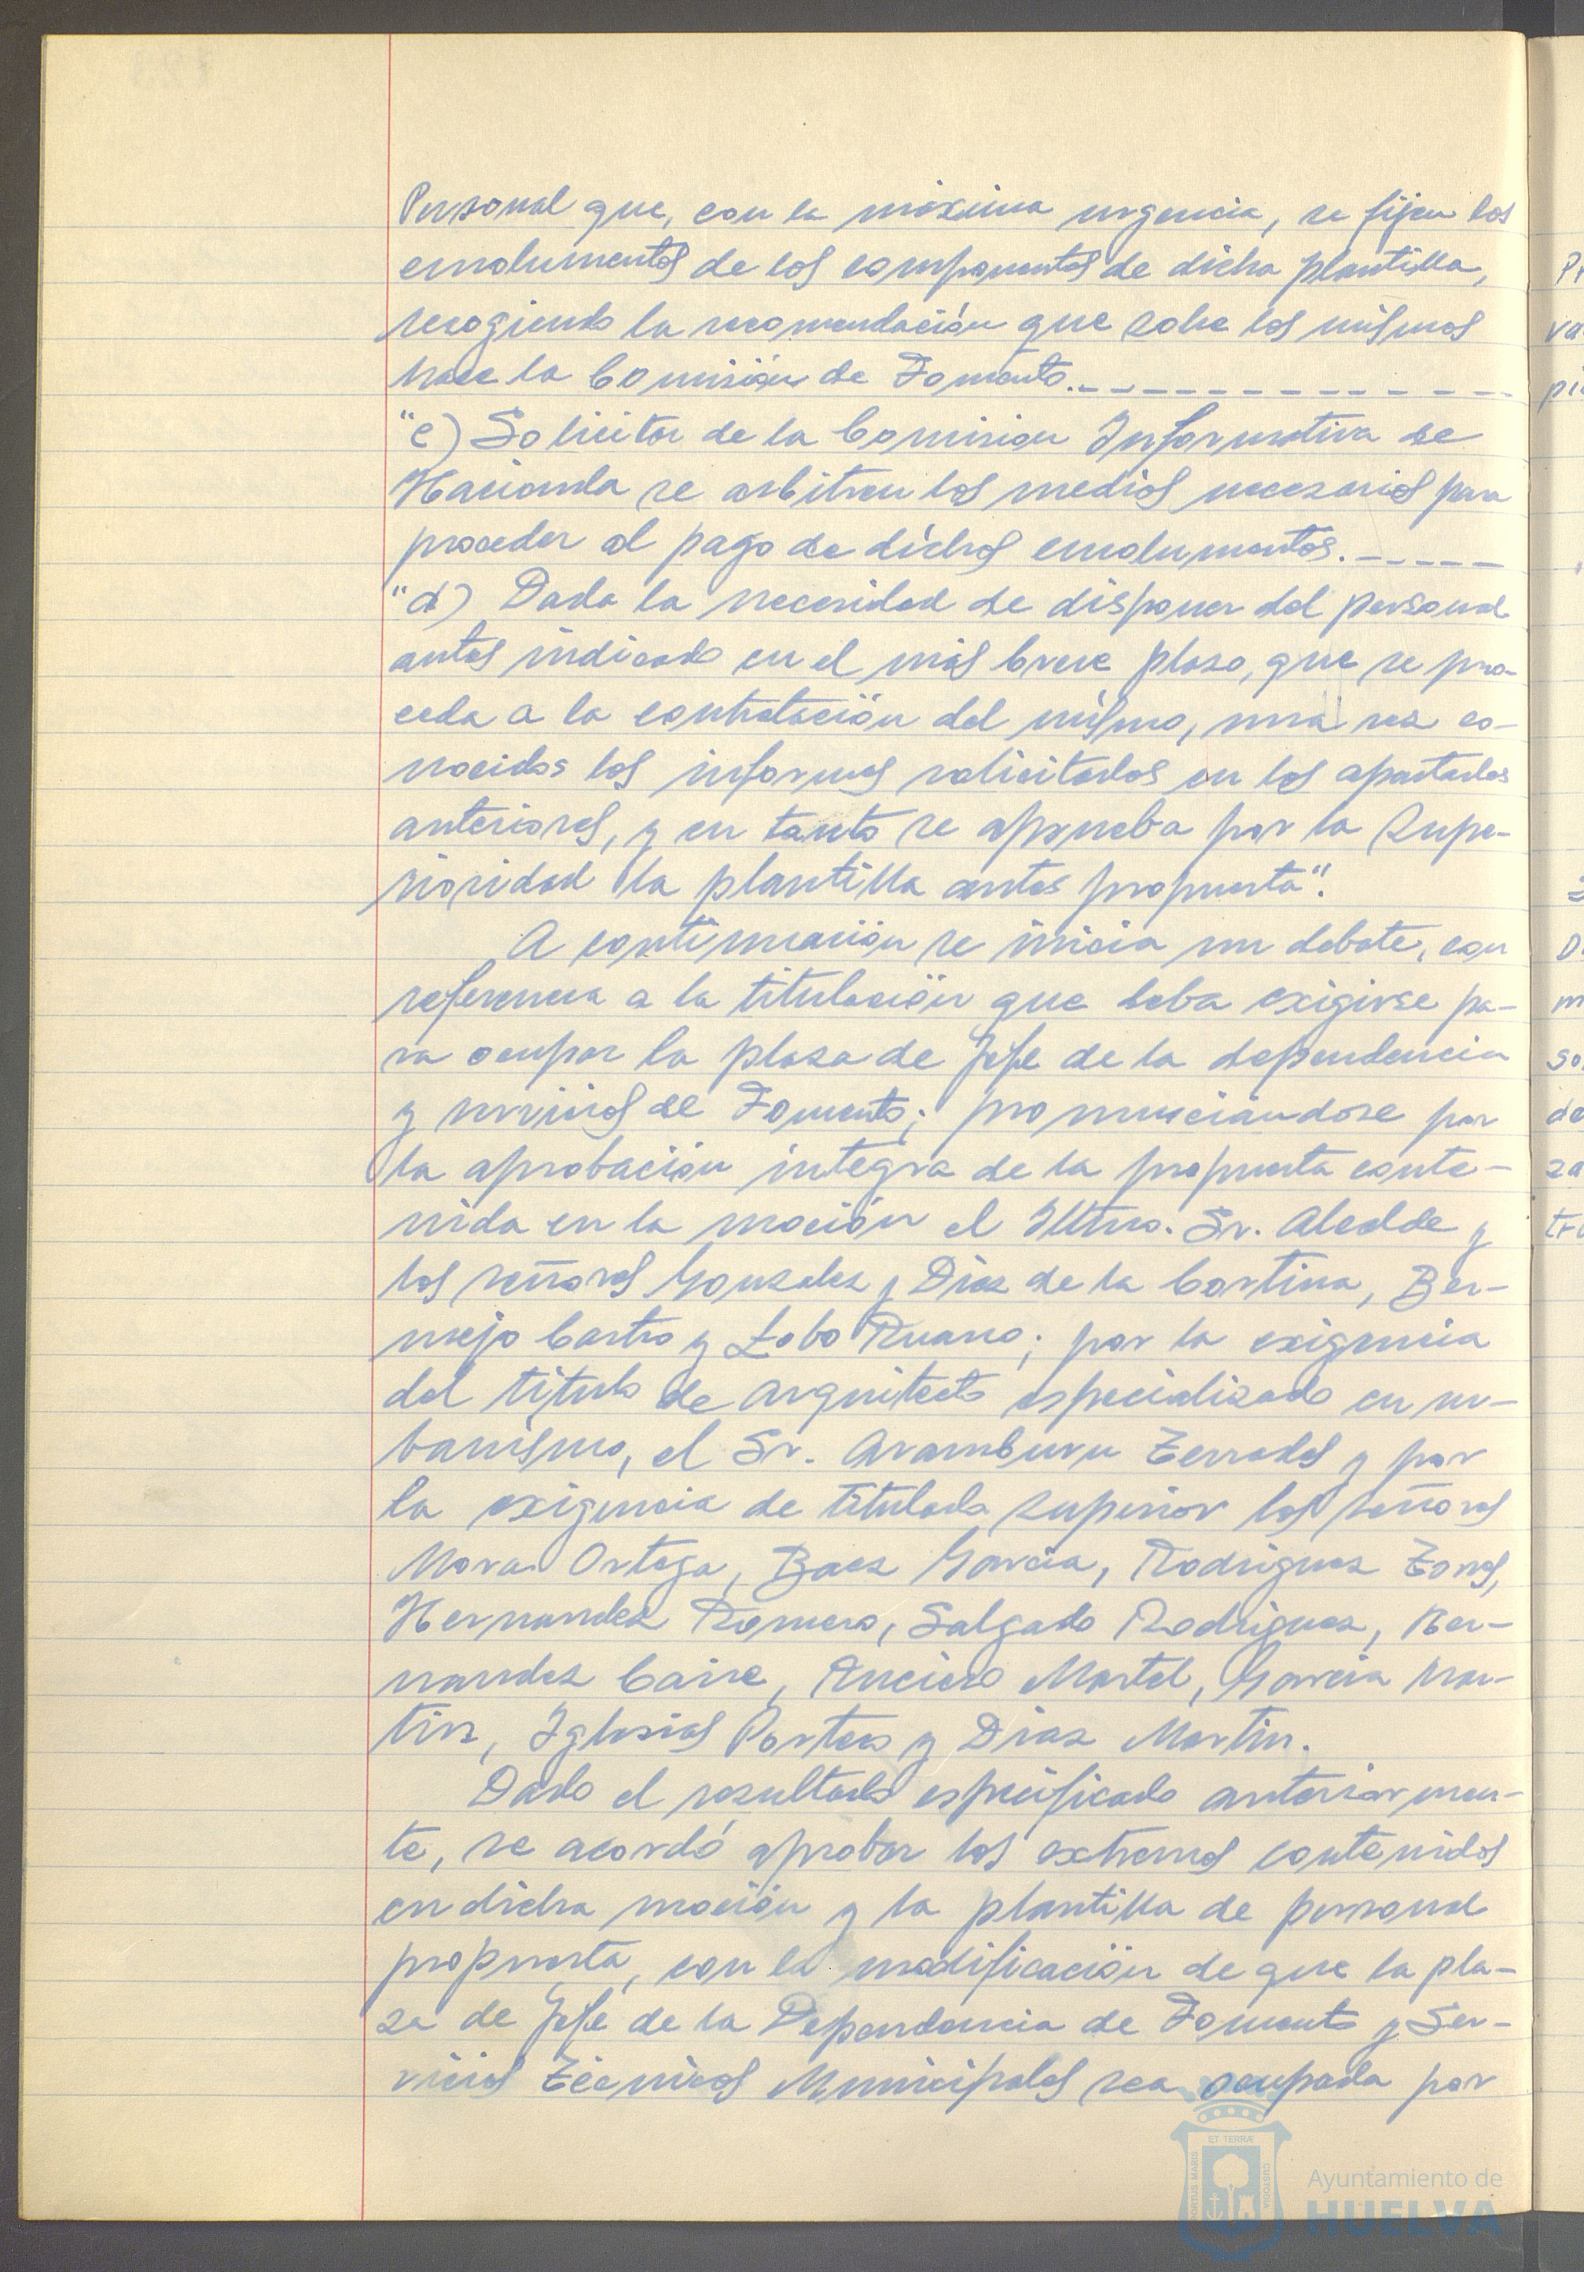 Personal que, con la máxima urgencia, se fijen los
emolumentos de los componentes de dicha plantilla,
recogiendo la recomendación que sobre los mismos
hace la Comisión de Fomento.
"c) Solicitar de la Comisión Informativa de
Hacienda se arbitren los medios necesarios para
proceder al pago de dichos emolumentos.
"d) Dada la necesidad de disponer del personal
antes indicado en el más breve plazo, que se pro-
ceda a la contratación del mismo, una vez co-
nocidos los informes solicitados en los apartados
anteriores, y en tanto se aprueba por la Supe-
rioridad la plantilla antes propuesta".
A continuación se inicia un debate, con
referencia a la titulación que deba exigirse pa-
ra ocupar la plaza de Jefe de la dependencia
y servicios de Fomento; pronunciándose por
la aprobación íntegra de la propuesta conte-
nida en la moción el Iltmo. Sr. Alcalde y
los señores Gonzalez y Diaz de la Cortina, Ber-
mejo Castro y Lobo Ruano; por la exigencia
del título de Arquitecto especializado en ur-
banismo, el Sr. Aramburu Terrades y por
la exigencia de titulado superior los señores
Mora Ortega, Baez Garcia, Rodriguez Torres,
Hernandez Romero, Salgado Rodriguez, Her-
nandez Caire, Anciero Martel, Garcia Mar-
tin, Iglesias Portero y Diaz Martin.
Dado el resultado especificado anteriormen-
te, se acordó aprobar los extremos contenidos
en dicha moción y la plantilla de personal
propuesta, con la modificación de que la pla-
za de Jefe de la Dependencia de Fomento y Ser-
vicios Técnicos Municipales sea ocupada por
ET TERRAE
PORTUS MARIS
CUSTODIA
Ayuntamiento de
HUELVA